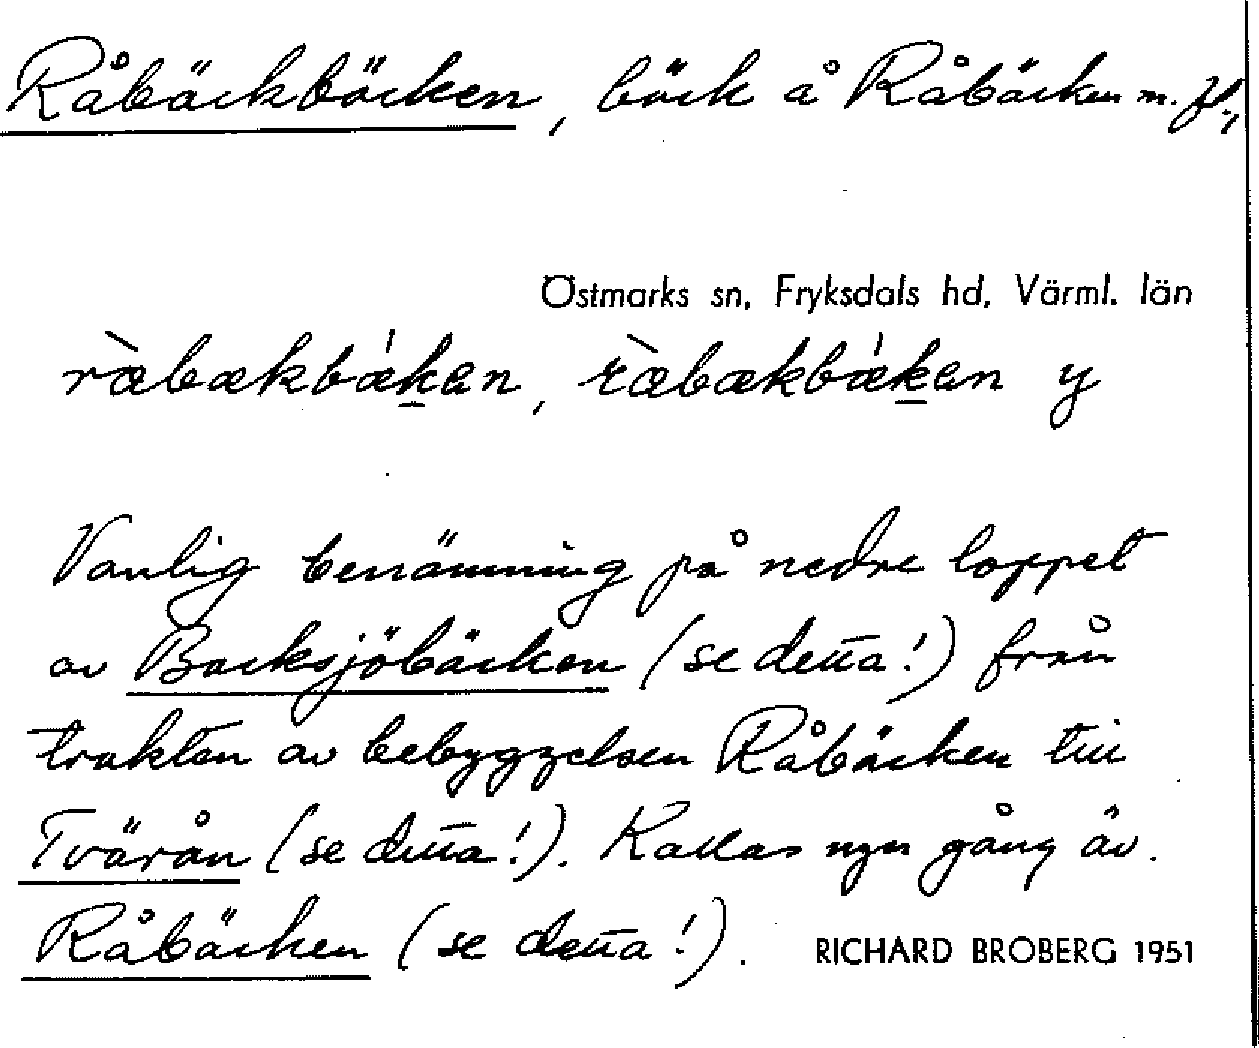 Råbäckbäcken, bäck å Råbäcken m. fl.,
Östmarks sn, Fryksdals hd, Värml. län
ràbækbǽken, ràbækbǽken y
Vanlig benämning på nedre loppet
av Backsjöbäcken (se detta!) från
trakten av bebyggelsen Råbäcken till
Tvärån (se detta!). Kallas ngn gång äv.
Råbäcken (se detta!).
RICHARD BROBERG 1951